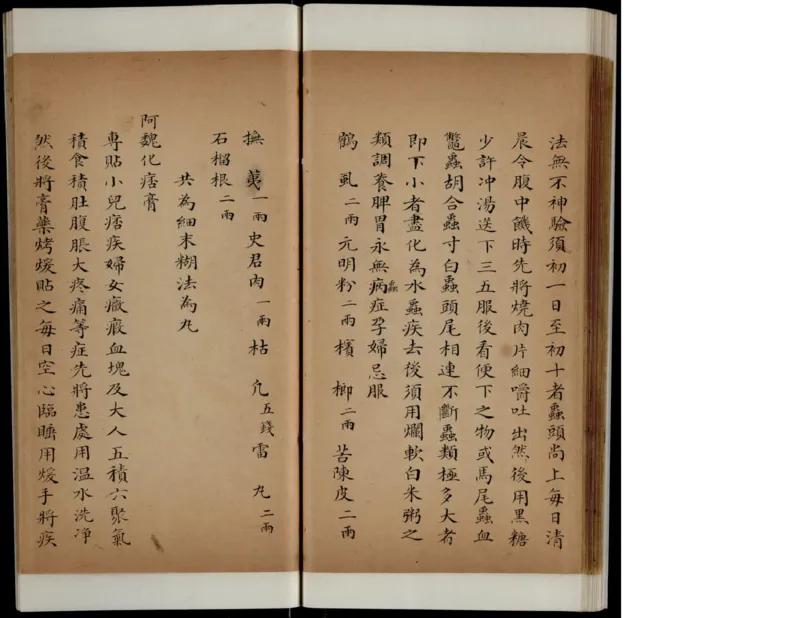 法無不神驗須初一日至初十者蟲頭尚上每日清
晨令腹中饑時先將燒肉片細嚼吐出然後用黑糖
少許冲湯送下三五服後看便下之物或馬尾蟲血
鱉蟲胡合蟲寸白蟲頭尾相連不斷蟲類極多大者
即下小者盡化為水蟲疾去後須用爛軟白米粥之
類調養脾胃永無病蟲症孕婦忌服
鶴虱二兩元明粉二兩檳榔二兩苦陳皮二兩
撫荑一兩史君肉一兩枯凢五錢雷丸二兩
石榴根二兩
共為細末糊法為丸
阿魏化痞膏
專貼小兒痞疾婦女癥瘕血塊及大人五積六聚氣
積食積肚腹脹大疼痛等症先將患處用溫水洗净
然後將膏藥烤煖貼之每日空心臨睡用煖手將疾